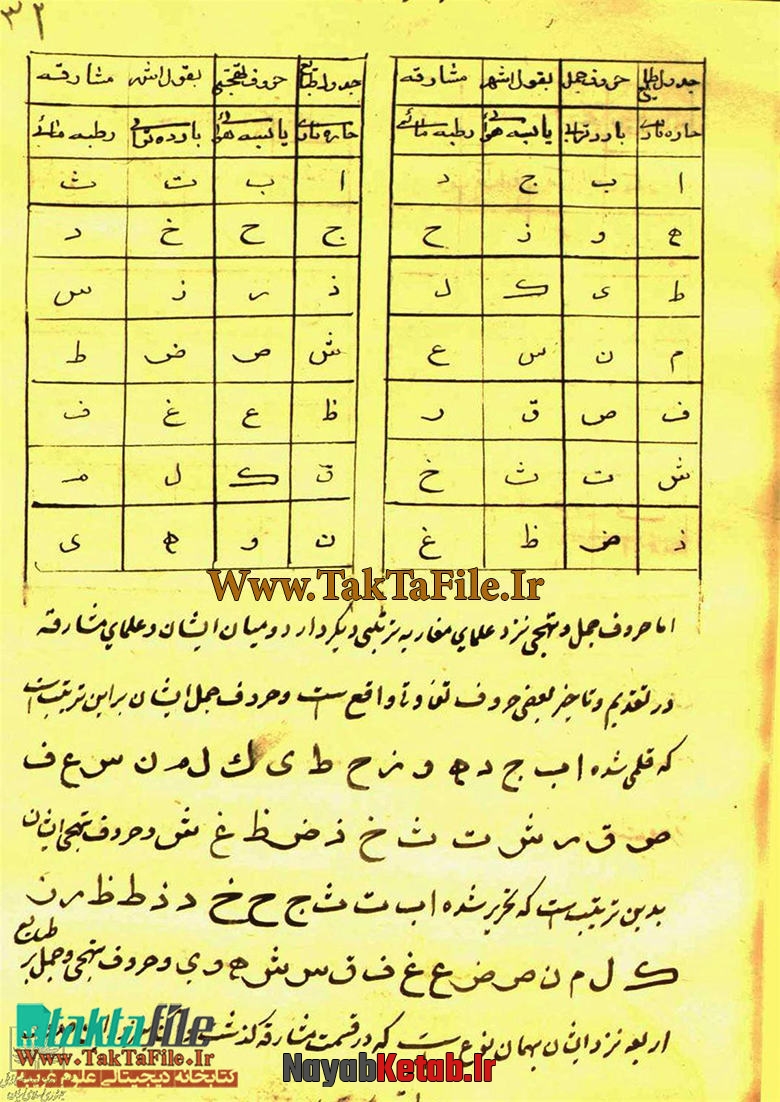 ٣٢
جدول طبایع حروف جمل بقول اشهر مشارقه
حاره ناری بارد ترابی یابسه هوائی رطبه مائی
ا ب ج د
ه و ز ح
ط ی ک ل
م ن س ع
ف ص ق ر
ش ت ث خ
ذ ض ظ غ
جدول طبایع حروف تهجی بقول اشهر مشارقه
حاره ناری یابسه هوائی بارده ترابی رطبه مائی
ا ب ت ث
ج ح خ د
ذ ر ز س
ش ص ض ط
ظ ع غ ف
ق ک ل م
ن و ه ی
Www.TakTaFile.Ir
اما حروف جمل و تهجی نزد علمای مغاربه ترتیبی دیگر دارد و میان ایشان و علمای مشارقه
در تقدیم و تاخیر بعضی حروف تفاوت واقع است و حروف جمل ایشان بر این ترتیب است
که قلمی شده ا ب ج د ه و ز ح ط ی ک ل م ن س ع ف
ص ق ر ش ت ث خ ذ ض ظ غ ش و حروف تهجی ایشان
بدین ترتیب است که تحریر شده ا ب ت ث ج ح خ د ذ ط ظ ر ز
ک ل م ن ص ض ع غ ف ق س ش ه و ی و حروف تهجی و جمل بر طبایع
اربعه نزد ایشان بهمان نوع است که در قسمت مشارقه گذشت
taktafile
Www.TakTaFile.Ir
کتابخانه دیجیتالی علوم غریبه
NayabKetab.Ir